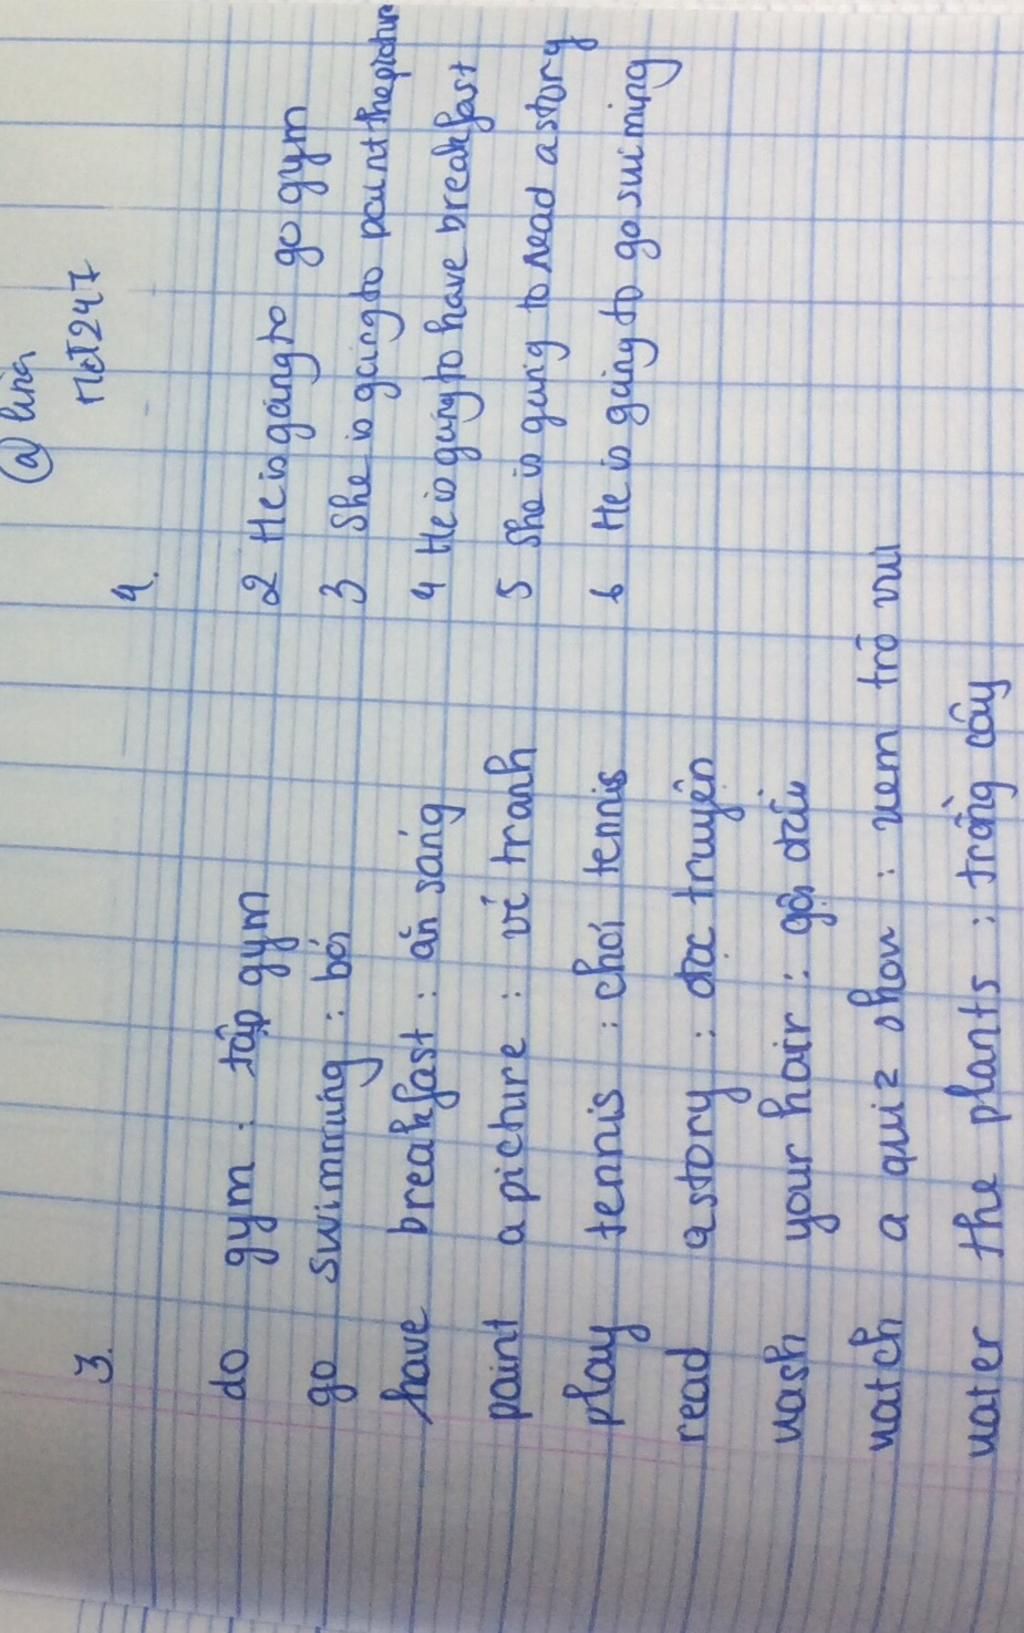 @ lina
Mót247
3.
do gym : tập gym
go swimming : bơi
have breakfast : ăn sáng
paint a picture : vẽ tranh
play tennis : chơi tennis
read a story : đọc truyện
wash your hair : gội đầu
watch a quiz show : xem trò vui
water the plants : trồng cây
4.
2 He is going to go gym
3 She is going to paint the picture
4 He is going to have breakfast
5 She is going to read a story
6 He is going to go suiming